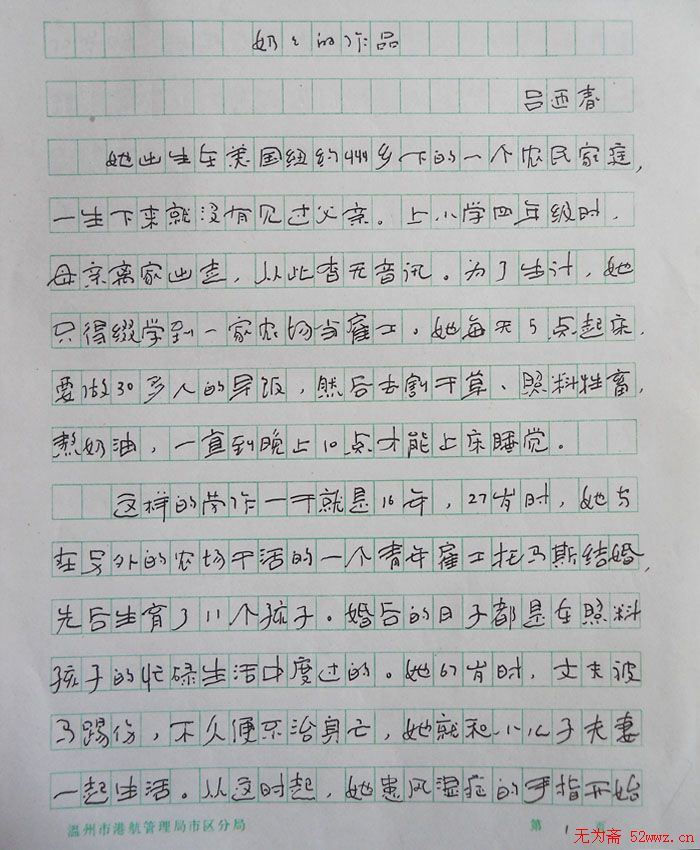 奶々的作品
吕西春
她出生在美国纽约州乡下的一个农民家庭,
一生下来就没有见过父亲。上小学四年级时,
母亲离家出走,从此杳无音讯。为了生计,她
只得缀学到一家农场当雇工。她每天5点起床,
要做30多人的早饭,然后去割干草、照料牲畜,
熬奶油,一直到晚上10点才能上床睡觉。
这样的劳作一干就是16年,27岁时,她与
在另外的农场干活的一个青年雇工托马斯结婚,
先后生育了11个孩子。婚后的日子都是在照料
孩子的忙碌生活中度过的。她67岁时,丈夫被
马踢伤,不久便不治身亡,她就和小儿子夫妻
一起生活。从这时起,她患风湿症的手指开始
温州市港航管理局市区分局
第 1 页
无为斋 52wwz.cn